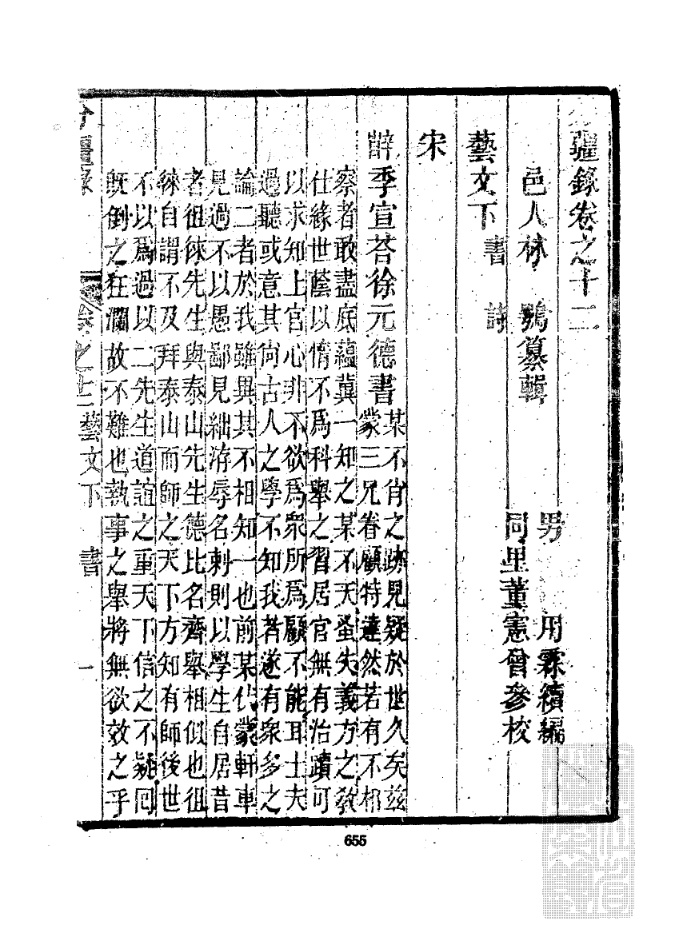 疆錄卷之十二
邑人林　鶚纂輯
男　用霖續編
同里董憲曾參校
藝文下　書　詩
宋
薛季宣荅徐元德書
某不肖之跡見疑於世久矣茲
蒙三兄眷顧特達然若有不相
察者敢盡底蘊冀一知之某不天蚤失義方之敎
仕緣世蔭以惰不爲科舉之習居官無有治蹟可
以求知上官心非不欲爲衆所爲顧不能耳士夫
過聽或意其尙古人之學不知我者遂有衆多之
論二者於我雖異其不相知一也前某代蒙軒車
見過不以愚鄙見絀游辱名剌則以學生自居昔
者徂徠先生與泰山先生德比名齊舉相似也徂
徠自謂不及拜泰山而師之天下方知有師後世
不以爲過以二先生道誼之重天下信之不疑囘
旣倒之狂瀾故不難也執事之舉將無欲效之乎
疆錄　卷之十二　藝文下　書　一
655